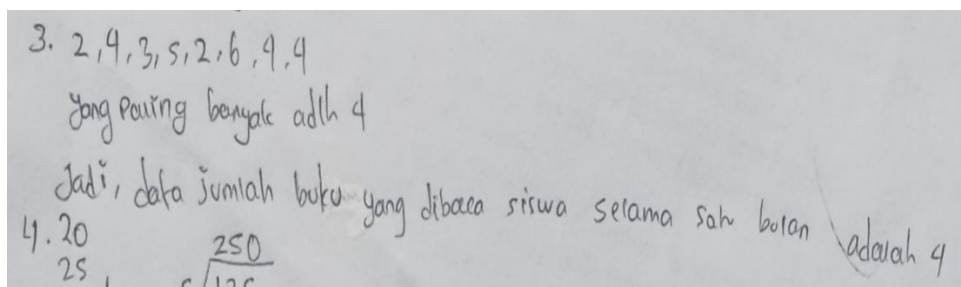 3. 2,4,3,5,2,6,4,4
yang paling banyak adlh 4
Jadi, data jumlah buku yang dibaca siswa selama satu bulan adalah 4
4. 20
250
25